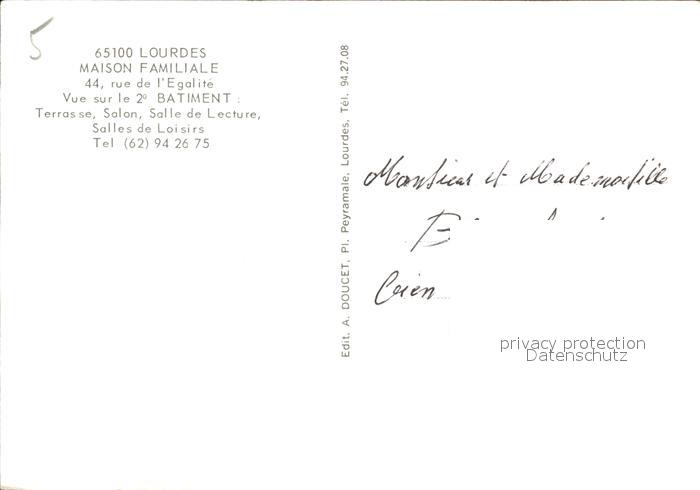 5
65100 LOURDES
MAISON FAMILIALE
44, rue de l'Egalité
Vue sur le 2º BATIMENT :
Terrasse, Salon, Salle de Lecture,
Salles de Loisirs
Tel (62) 94 26 75
Edit. A. DOUCET, Pl. Peyramale, Lourdes, Tél. 94.27.08
Monsieur et Mademoiselle
privacy protection
Datenschutz